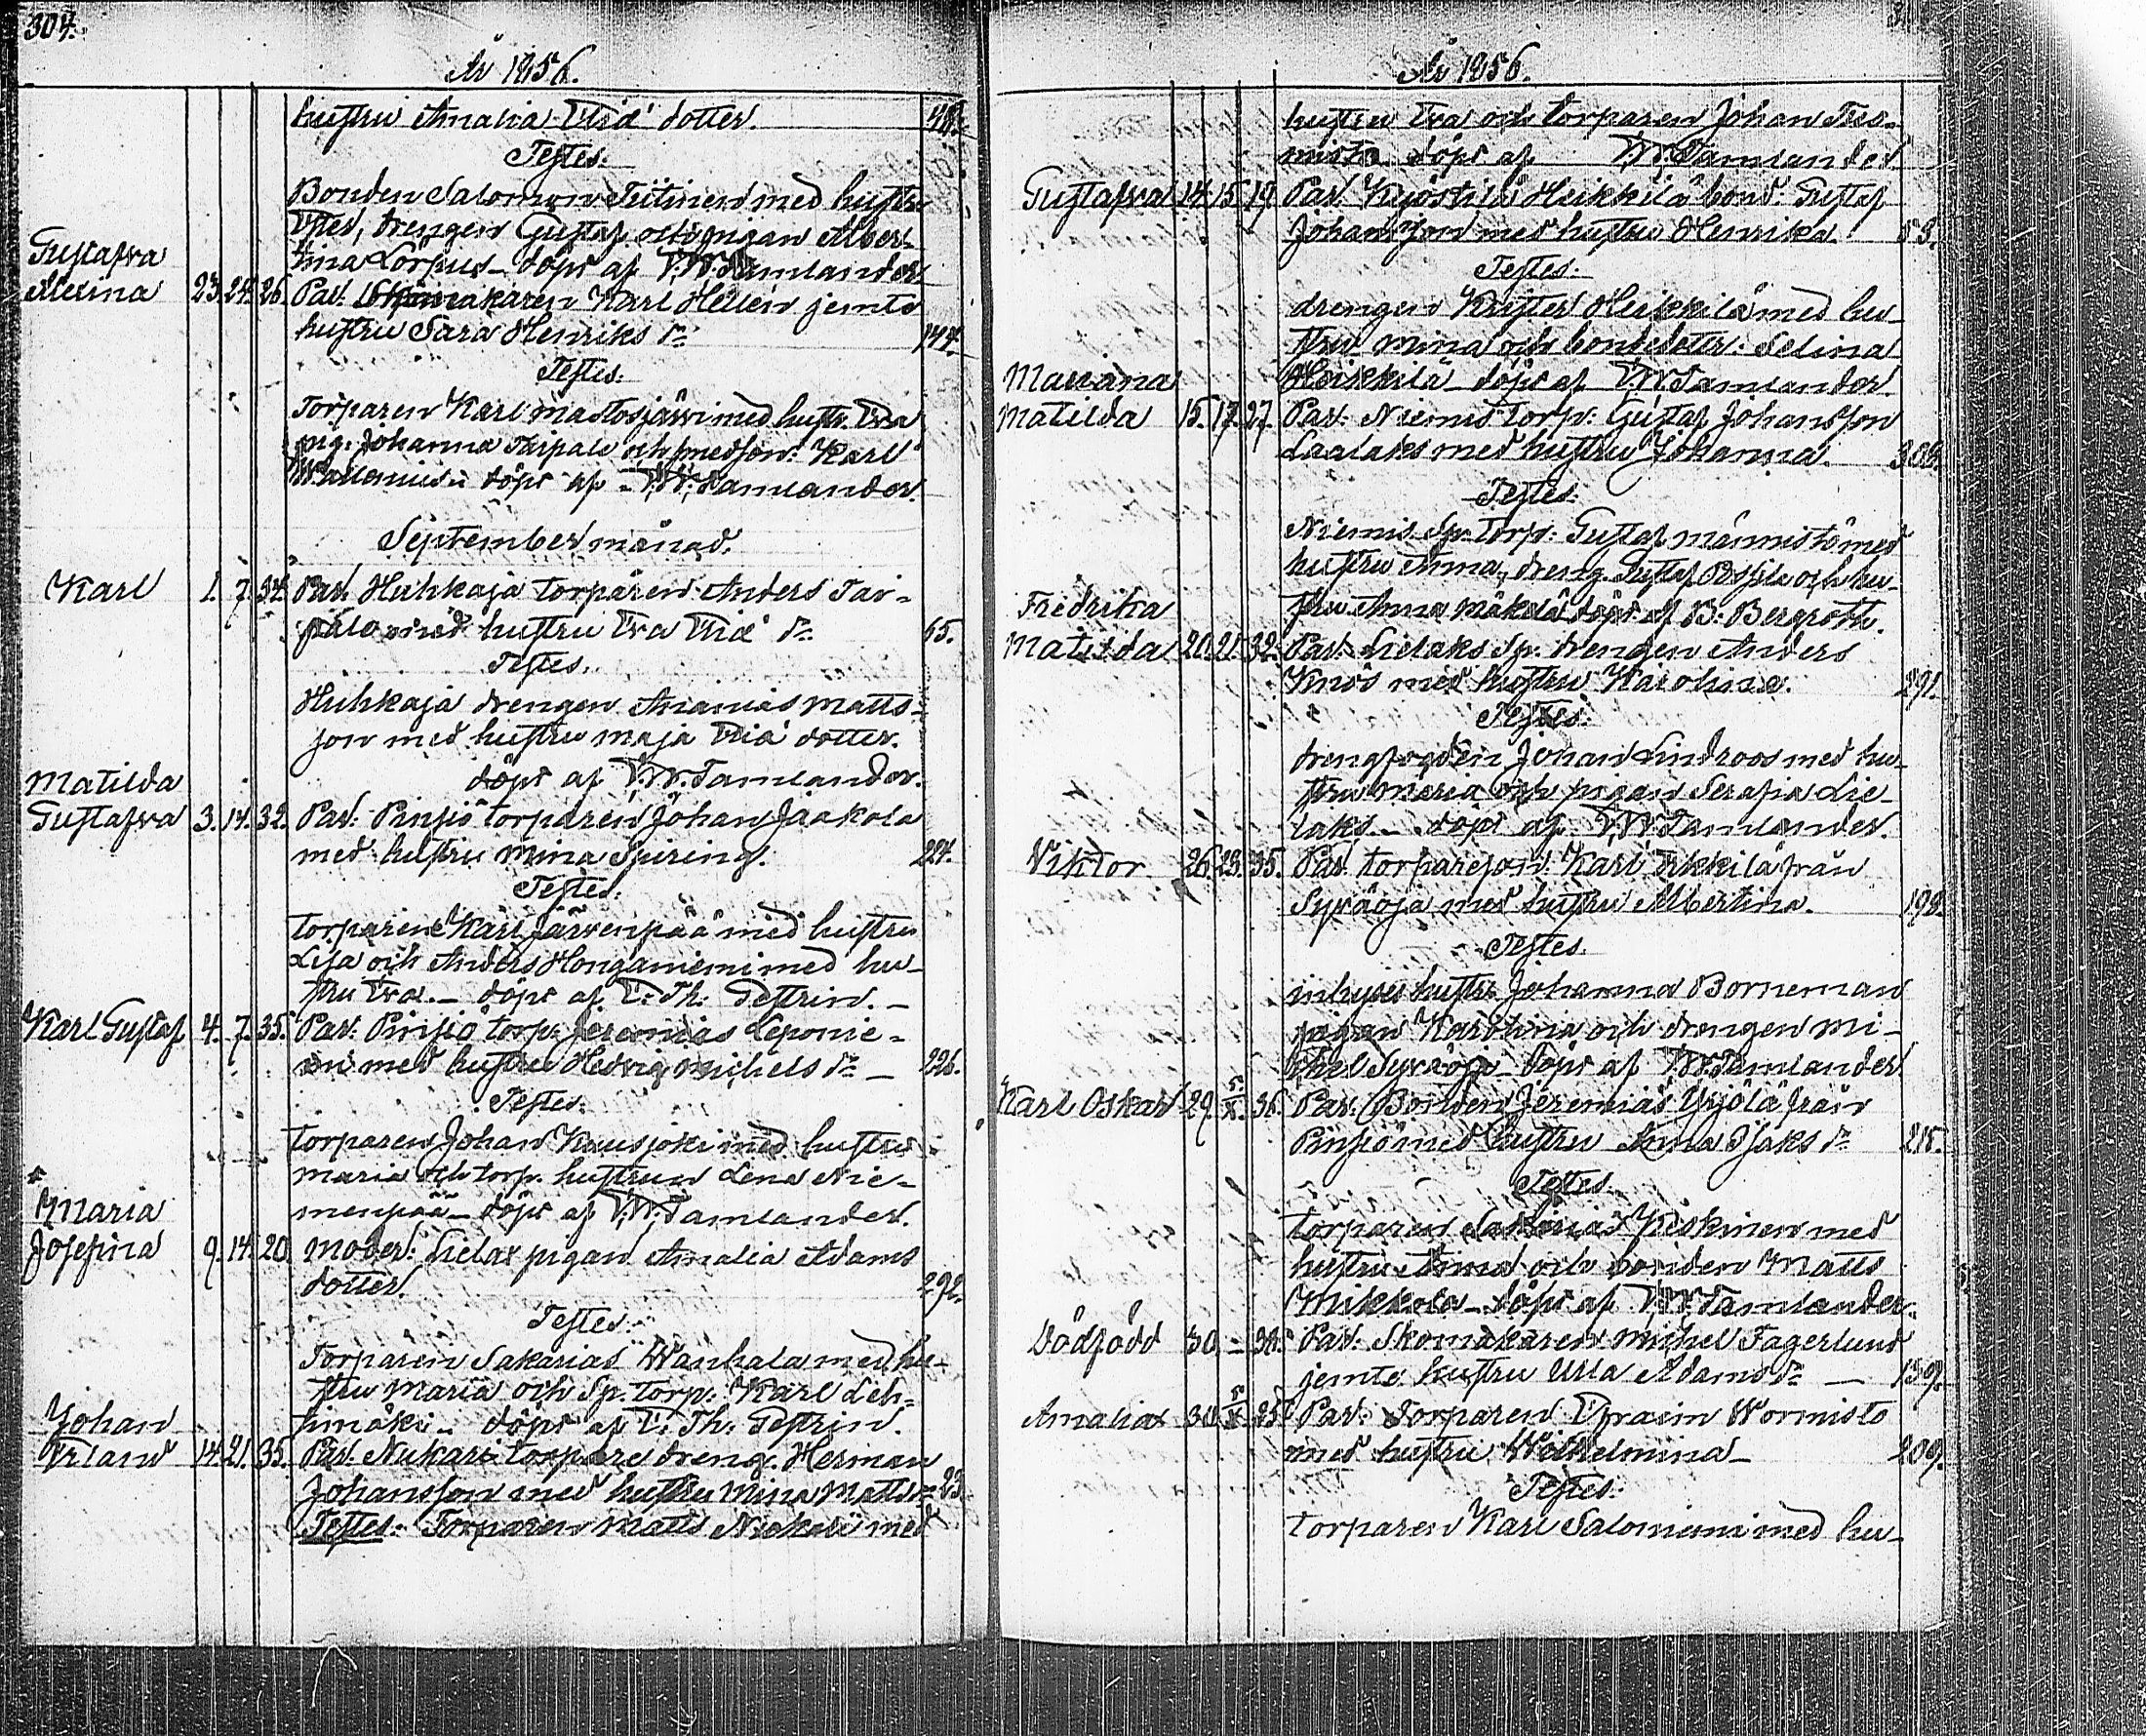 304.
År 1856.
hustru Amalia Eriä dotter. 48.
Testes.
Bonden Salomon Tiitinen med hustru
drengen Gustaf och pigan Alber-
tina Lörpus döpt af V.W. Tamlander
Gustafva
Alexina 23. 24. 26. Par. Karl Hellen jemte
hustru Sara Henriks dr 144.
Testes.
Torparen Karl Mastosjärvi med hustr. Eva
pig. Johanna Tarpale och smedson: Karl
döpt af V.W. Tamlander.
September månad.
Karl 1. 7. 34. Par. Huhkaja torparen Anders Tai-
palo med hustru Eva Eriä dr 65.
Testes.
Huhkaja drengen Ananias Matts-
son med hustru Maja Eriä dotter.
döpt af V.W. Tamlander.
Matilda
Gustafva 3. 14. 32. Par: Pinsiö torparen Johan Jaakola
med hustru Mina Spiring. 224.
Testes.
torparen Karl Järvenpää med hustru
Lisa och Anders Honganiemi med hu-
stru Eva. döpt af E. Th. Gestrin.
Karl Gustaf 4. 7. 35. Par: Pinsiö torp: Jeremias Leponie-
mi med hustru Hedvig Michels dr 226.
Testes.
torparen Johan Kuusjoki med hustru
Maria och torp. hustrun Lena Nie-
menpää döpt af V.W. Tamlander.
Maria
Josefina 9. 14. 20. Moder: Lielax pigan Amalia Adams
dotter. 292.
Testes.
Torparen Sakarias Wanhala med hu-
stru Maria och Sp. torp: Karl Leh-
timäki döpt af E. Th. Gestrin.
Johan
Erland 14. 21. 35. Par. Nukari torpare dreng. Herman
Johansson med hustru Mina Matts dr 23.
Testes: Torparen Matts med
År 1856.
hustru Eva och torparen Johan Tuo-
misto döpt af V.W. Tamlander.
Gustafva 14. 15. 19. Par. Kyöstilä Heikkilä bond. Gustaf
Johansson med hustru Henrika. 53.
Testes.
drengen Krister Heikkilä med hu-
stru Mina och bondedotter: Selina
Heikkilä döpt af V.W. Tamlander.
Mariana
Matilda 15. 17. 27. Par: Niemis torp: Gustaf Johansson
Laalaks med hustru Johanna. 308.
Testes.
Niemis Sp. torp: Gustaf Männistö med
hustru Anna, dreng. Gustaf och hu-
stru Anna Mäkelä döpt af B: Bergroth.
Fredrika
Matilda 20. 21. 32. Par: Lielaks Sp. drengen Anders
Knös med hustru Karolina. 291.
Testes.
drengfogden Johan Lindroos med hu-
stru Maria och pigan Serafia Lie-
laks. döpt af V.W. Tamlander.
Viktor 26. 28. 35. Par torpareson: Karl Erkkilä från
Sypäoja med hustru Albertina. 198.
Testes.
inhyses hustru Johanna Borneman
pigan Karolina och drengen Mi-
chel Sypäoja döpt af V.W. Tamlander
Karl Oskar 29. 5/X. 36. Par: Bonden Jeremias Yrjölä från
Pinsiö med hustru Anna Isaks dr 215.
Testes.
torparen Sakarias Kiskinen med
hustru Anna och bonden Matts
Mikkola döpt af V.W. Tamlander.
Dödfödd 30. – 38. Par. Skomakaren Michel Fagerlund
jemte hustru Ulla Adams dr 159.
Amalia 30. 5/X. 25. Par: Torparen Efraim Wormisto
med hustru Wilhelmina 209.
Testes.
torparen Karl Saloniemi med hu-